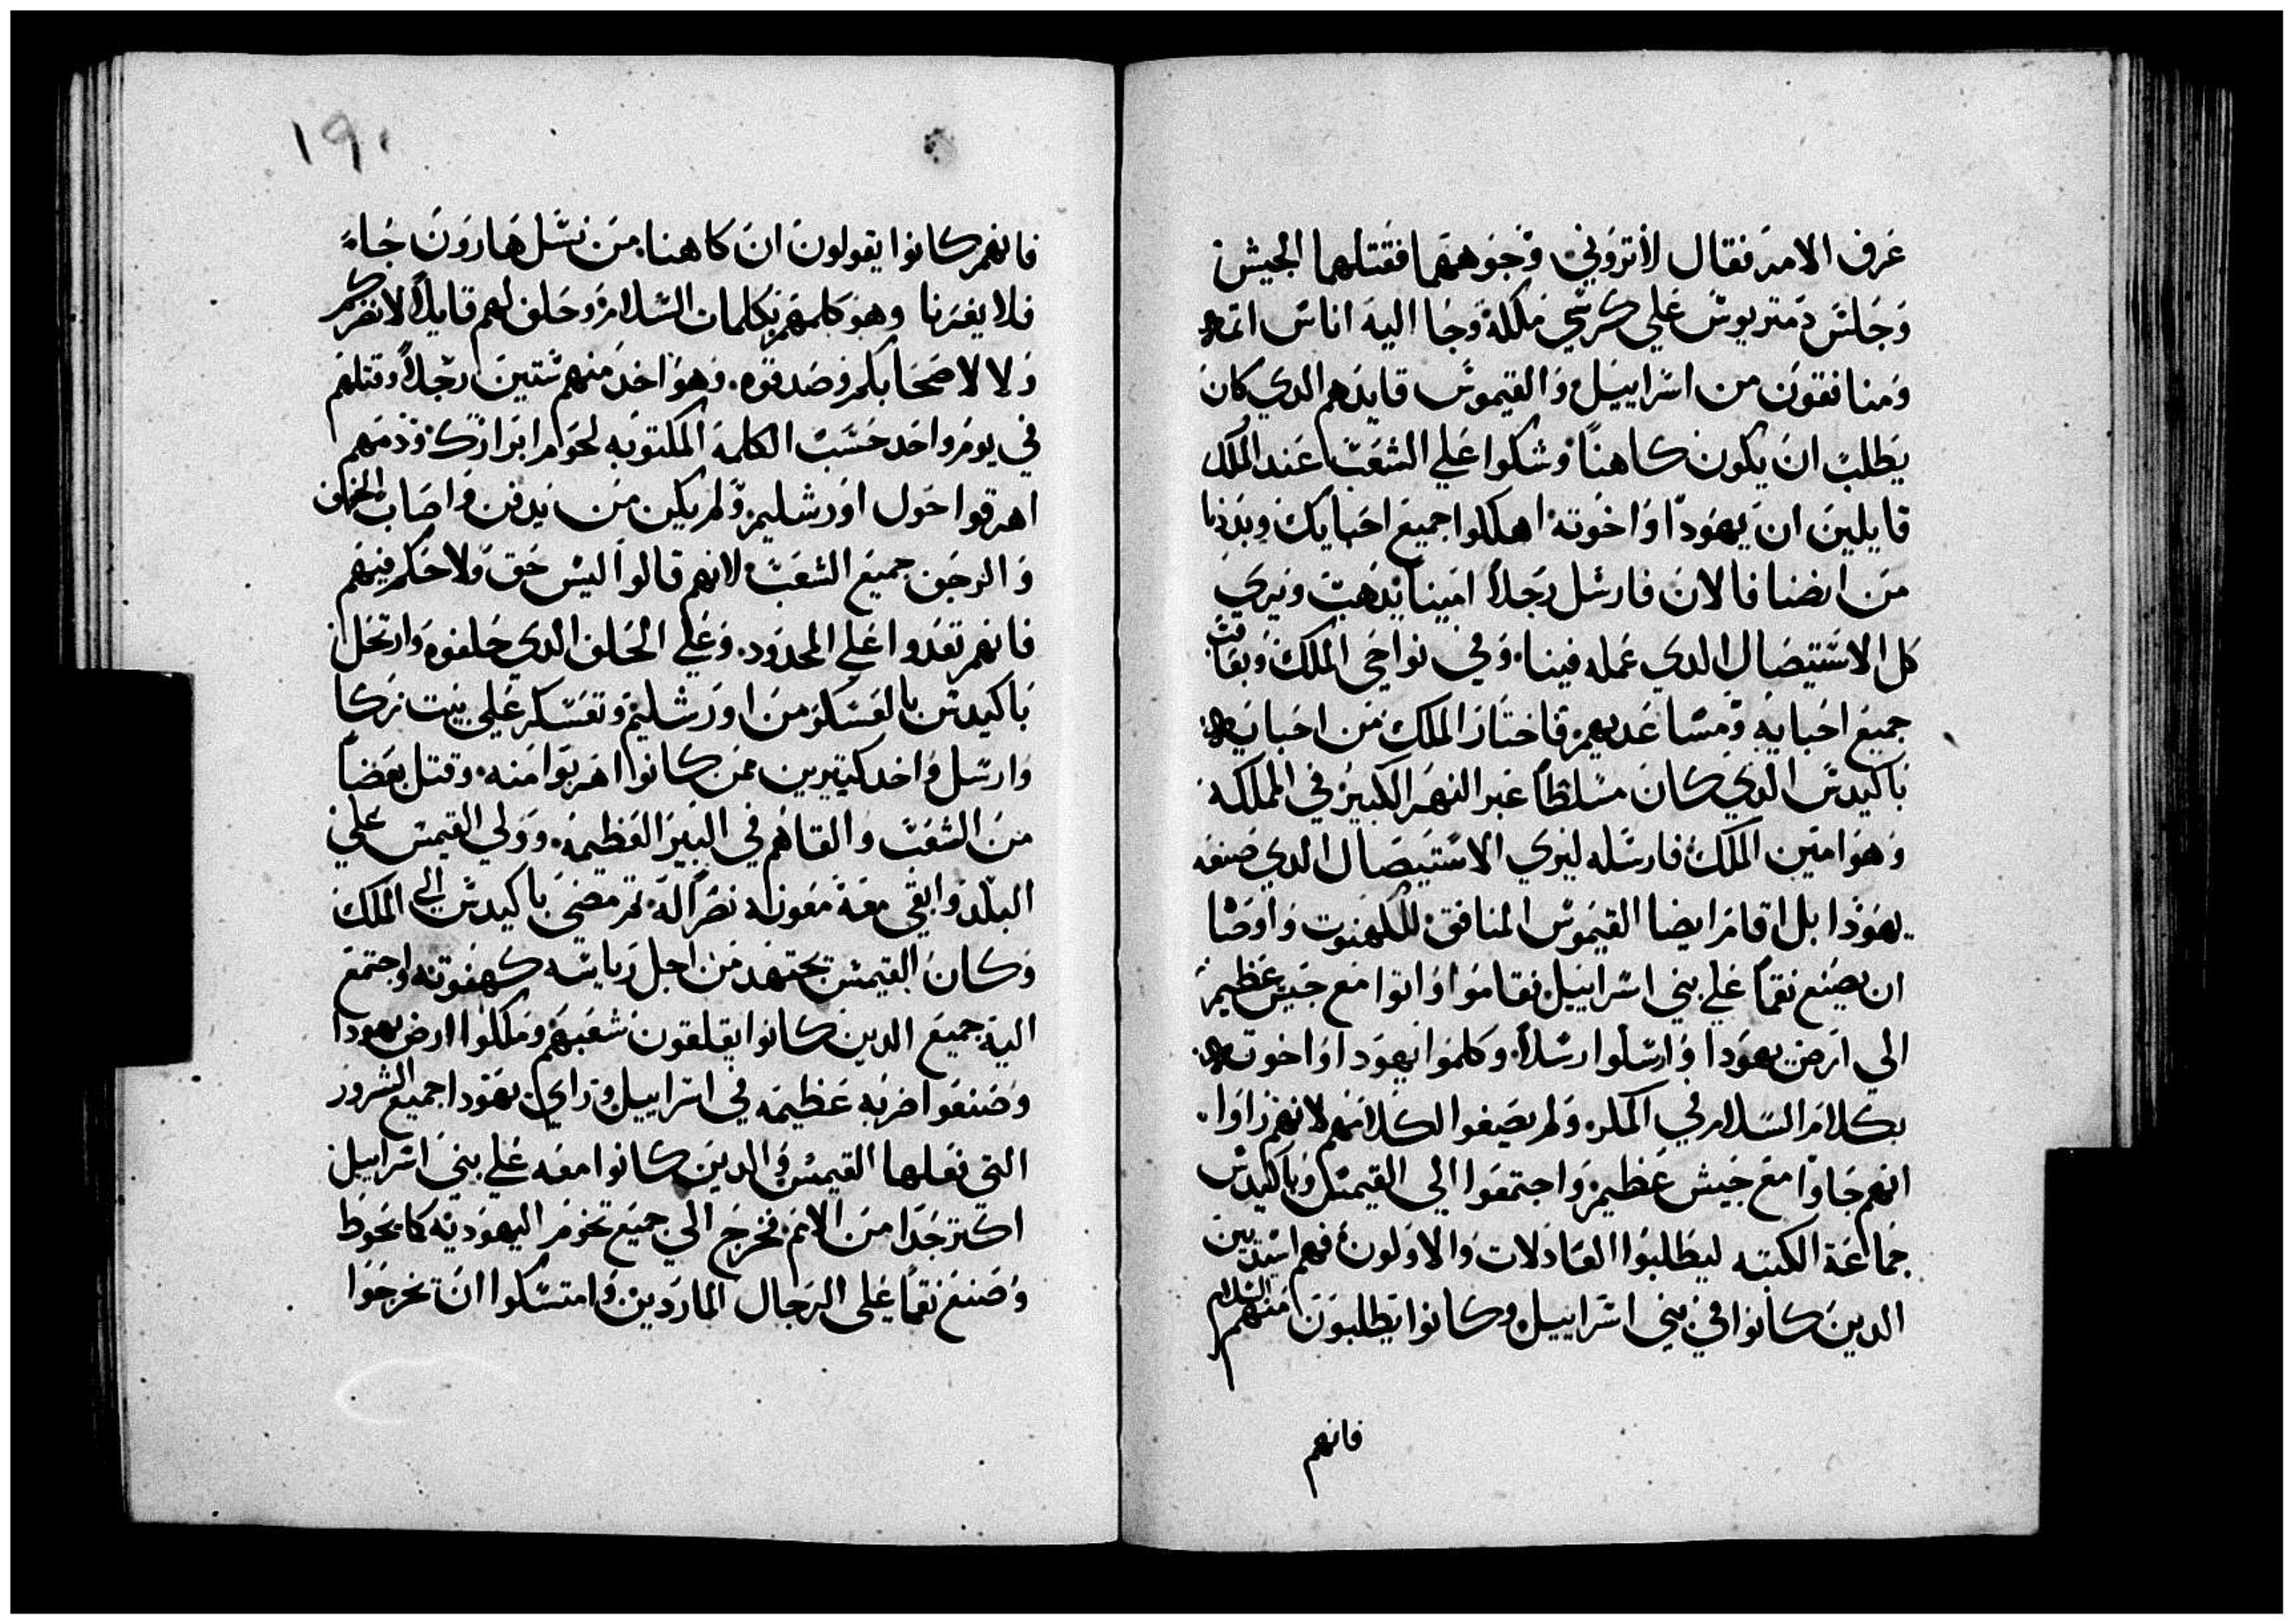 عرف الامر فقال لا تروني وجوههما فقتلهما الجيش
وجلس دمتريوس علي كرسي ملكه وجا اليه اناس اتمه
ومنافقون من اسراييل والقيموس قايدهم الدي كان
يطلب ان يكون كاهنا وشكوا علي الشعب عند الملك
قايلين ان يهودا واخوته اهلكوا جميع احبايك وبددنا
من ارضنا فالان فارسل رجلا امينا يدهب ويري
كل الاستيصال الدي عمله فينا وفي نواحي الملك ويعاقب
جميع احبايه ومساعديهم فاختار الملك من احبايه
باكيدس الدي كان مسلطا عبر النهر الكبير في المملكه
وهو امين الملك فارسله ليري الاستيصال الدي صنعه
يهودا بل اقام ايضا القيموس المنافق للكهنوت واوصا
ان يصنع نقما علي بني اسراييل فقاموا واتوا مع جيش عظيم
الي ارض يهودا وارسلوا رسلا وكلموا يهودا واخوته
بكلام السلام في المكر ولم يصيغوا لكلامهم لانهم راوا
انهم جاوا مع جيش عظيم واجتمعوا الي القيمس وباكيدس
جماعة الكتبه ليطلبوا العادلات والاولون فهم اسيديين
الدين كانوا في بني اسراييل وكانوا يطلبون منهم السلام
فانهم
١٩٠
فانهم كانوا يقولون ان كاهنا من نسل هارون جاء
فلا يغرنا وهو كلمهم بكلمات السلام وحلف لهم قايلا لا نضركم
ولا لاصحابكم وصدقوه وهو اخد منهم ستين رجلا وقتلهم
في يوم واحد حسب الكلمه المكتوبه لحوم ابرارك ودمهم
اهرقوا حول اورشليم ولم يكن من يدفن واصاب الخوف
والرجف جميع الشعب لانهم قالوا ليس حق ولا حكم فيهم
فانهم تعدوا علي المحدود وعلي الحلف الدي حلفوه وارتحل
باكيدس بالعسكر من اورشليم وتعسكر علي بيت زكا
وارسل واخد كتيرين ممن كانوا اهربوا منه وقتل بعضا
من الشعب والقاهم في البير العظيمه وولي القيمس علي
البلد وابقي معه معونه نصرا له تم مضي باكيدس الي الملك
وكان القيمس يجتهد من اجل رياسه كهنوته واجتمع
اليه جميع الدين كانوا يقلقون شعبهم وملكوا ارض يهودا
وصنعوا ضربه عظيمه في اسراييل وراي يهودا جميع الشرور
التي فعلها القيمس والدين كانوا معه علي بني اسراييل
اكتر جدا من الامم فخرج الي جميع تخوم اليهوديه كما يحوط
وصنع نقما علي الرجال الماردين وامتسكوا ان تخرجوا